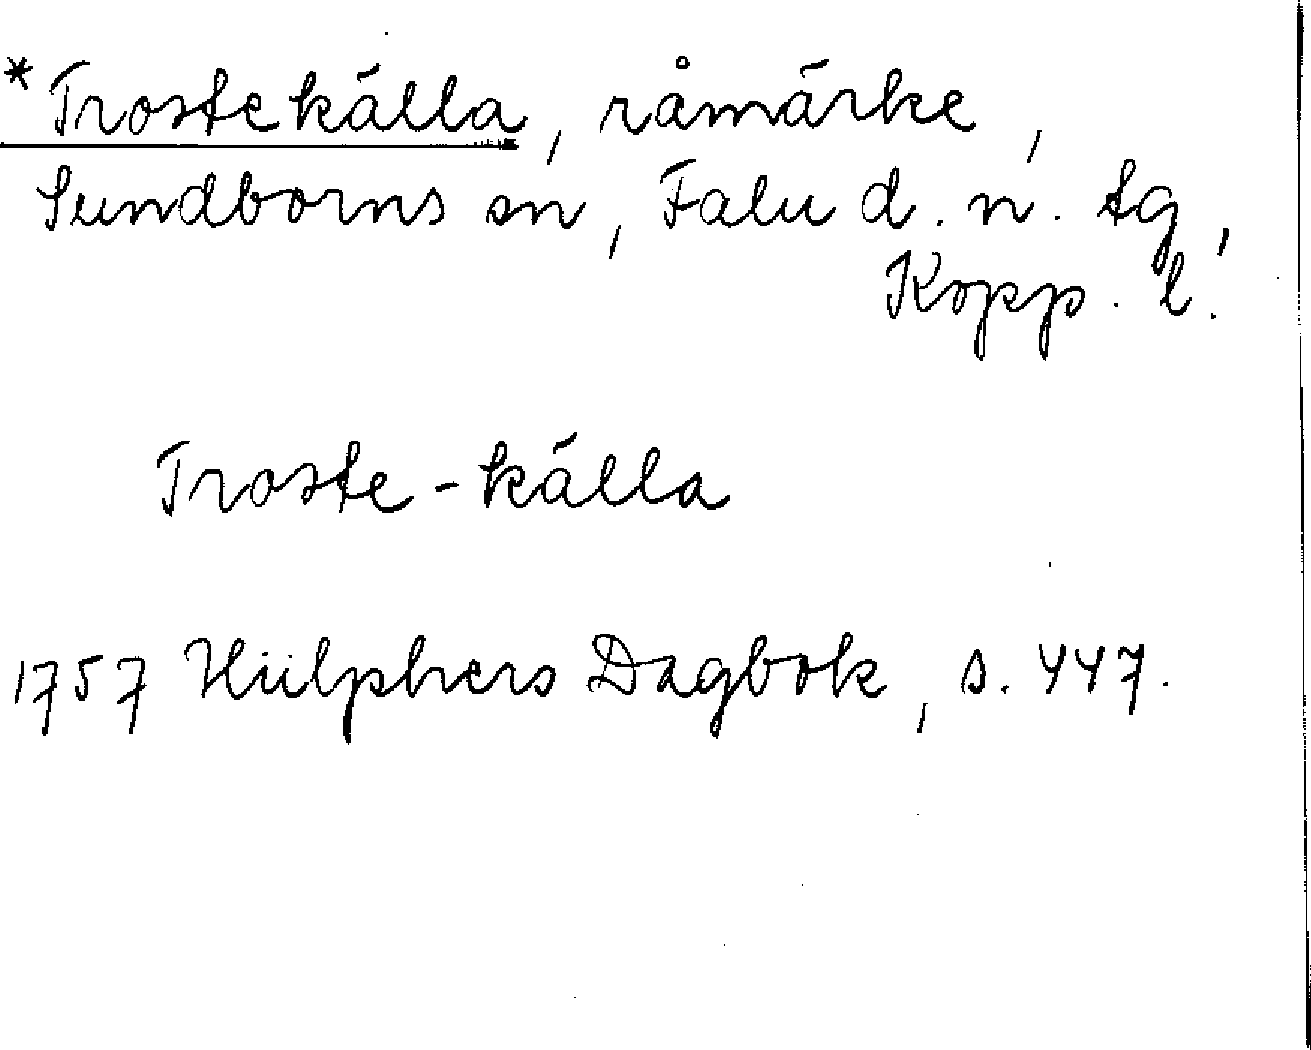 *Trostekälla, råmärke,
Sundborns sn, Falu d. n. tg,
Kopp. l.
Troste-källa
1757 Hülphers Dagbok, s. 447.